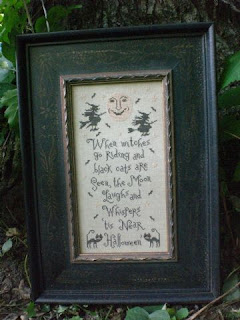 When witches
go Riding and
black cats are
Seen, the Moon
Laughs and
Whispers
'tis Near
Halloween